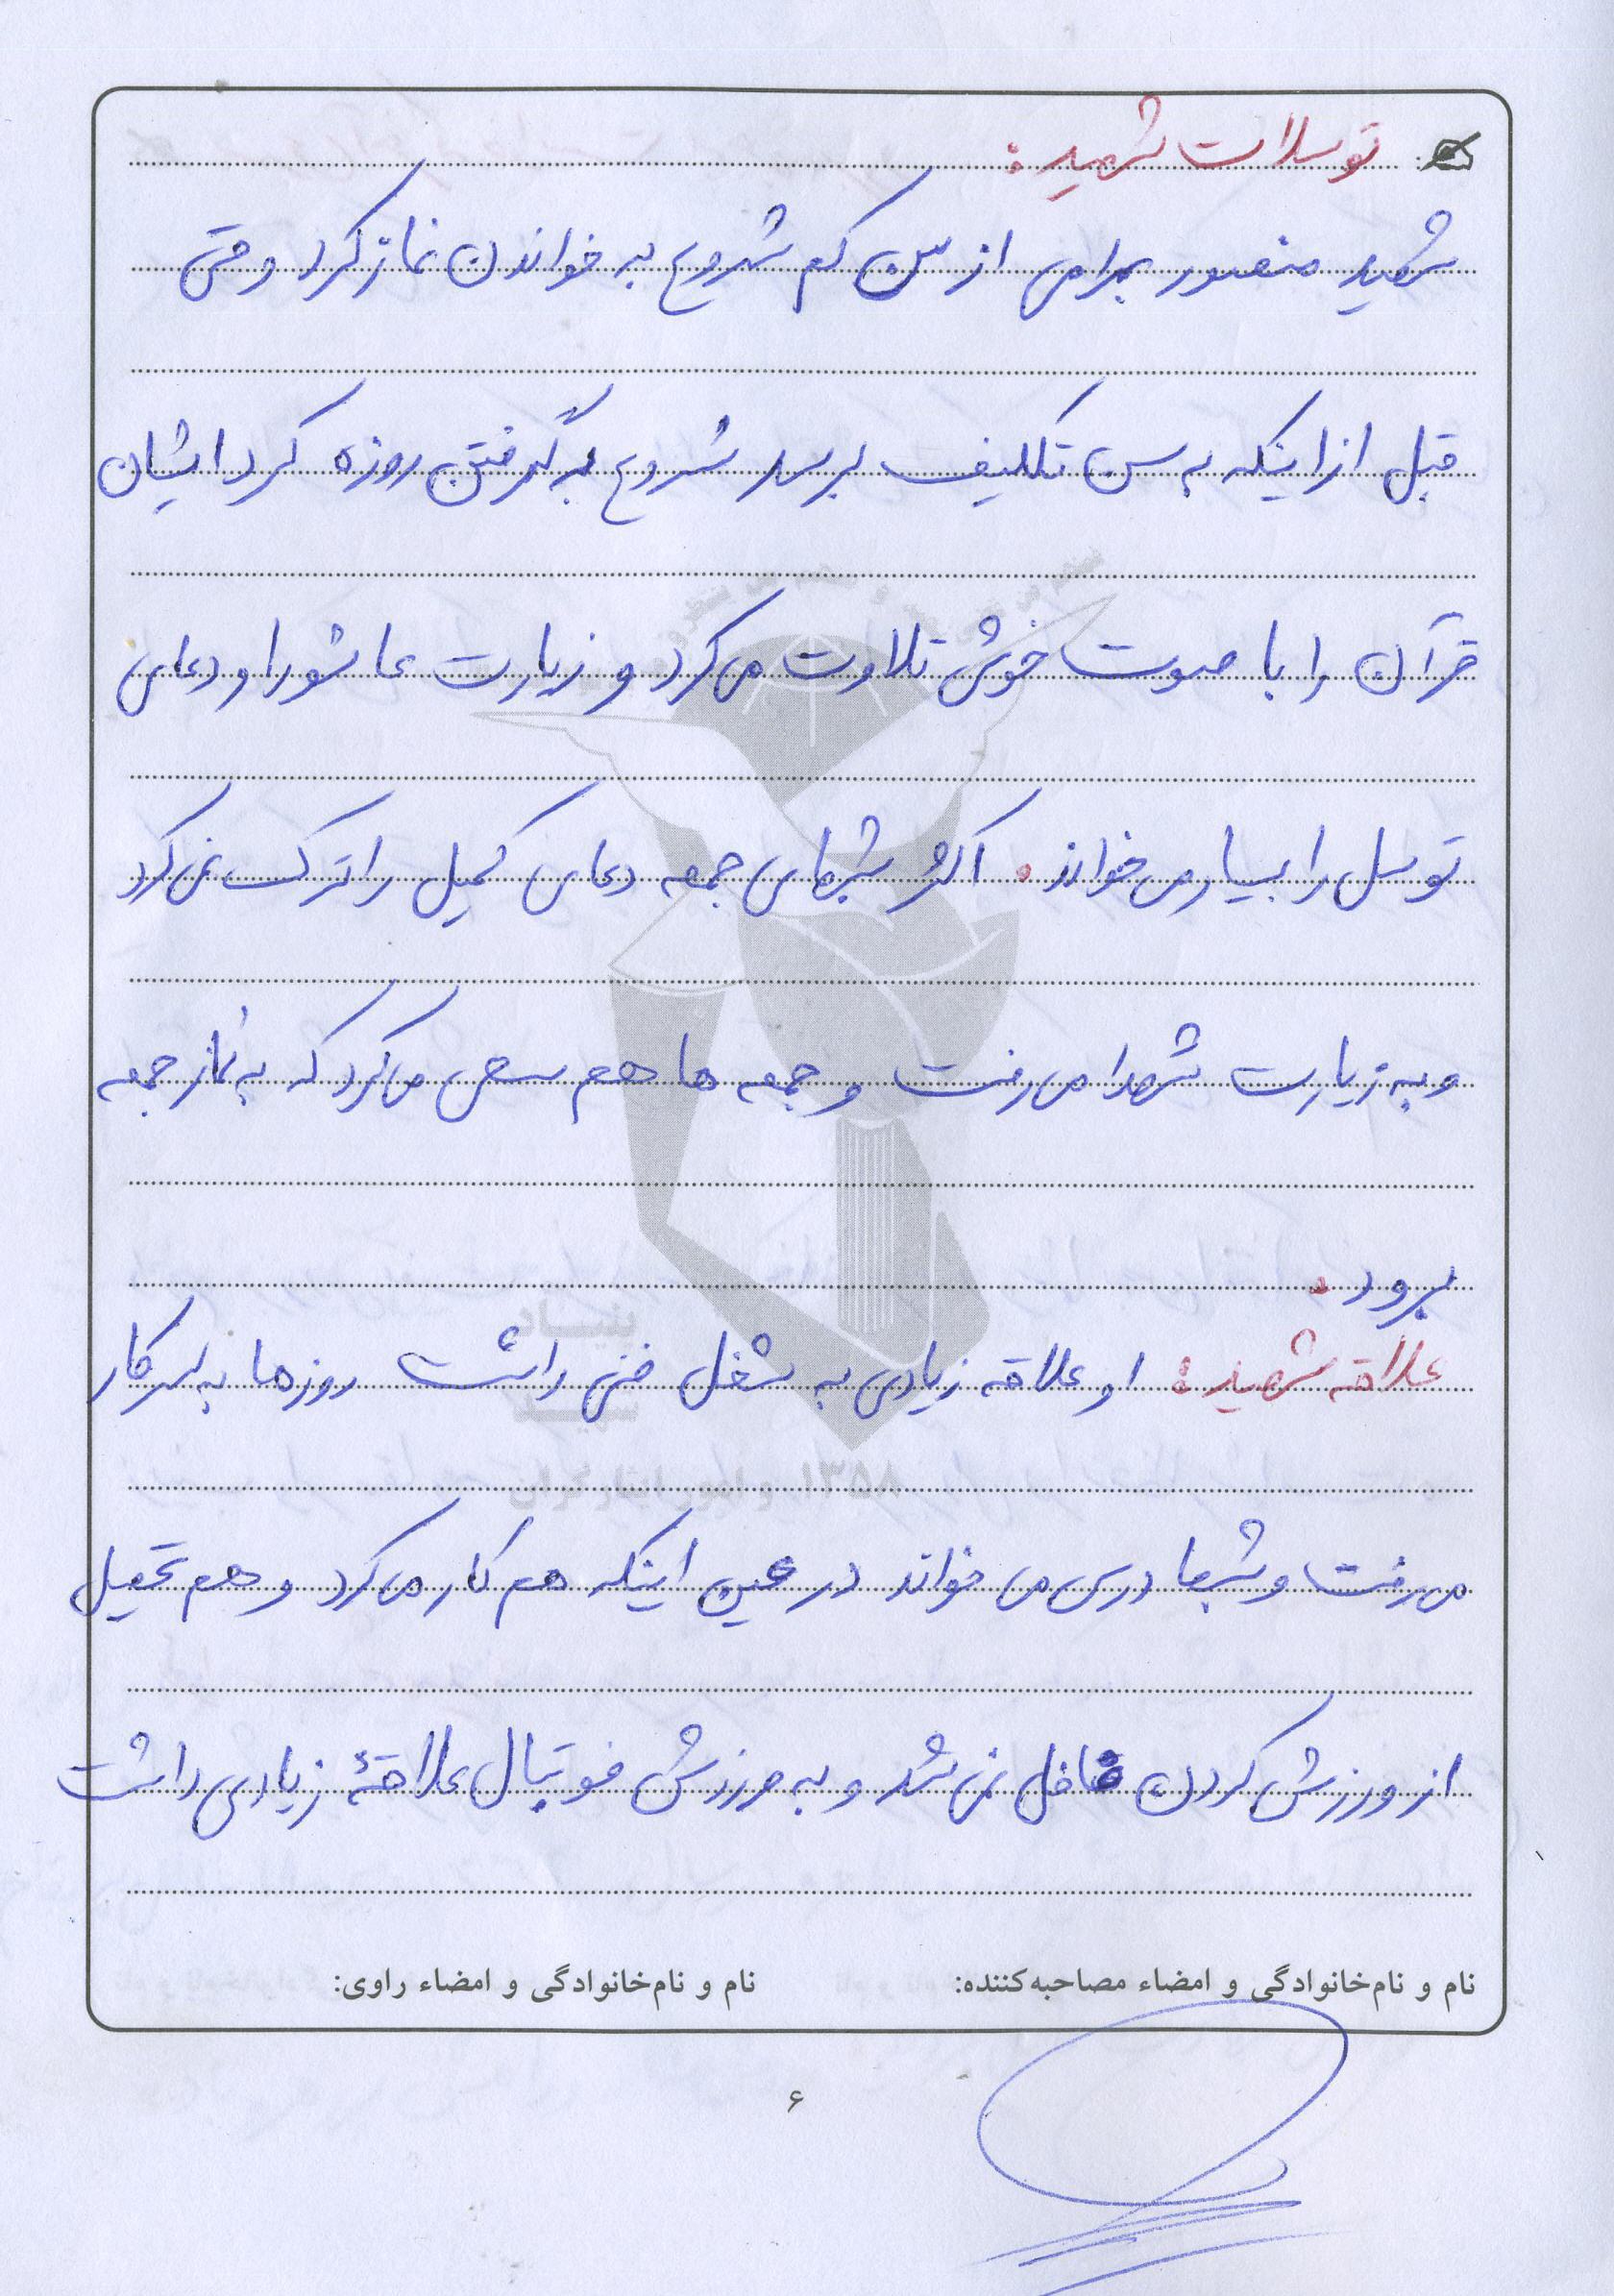 توسلات شهید:
شهید منصور بهرامی از سن کم شروع به خواندن نماز کرد و حتی
قبل از اینکه به سن تکلیف برسد شروع به گرفتن روزه کرد ایشان
قرآن را با صوت خوش تلاوت می کرد و زیارت عاشورا و دعای
توسل را بسیار می خواند. اکثر شبهای جمعه دعای کمیل را ترک نمی کرد
و به زیارت شهدا می رفت و جمعه ها هم سعی می کرد که به نماز جمعه
برود.
علاقه شهید: او علاقه زیادی به شغل فنی داشت روزها به سر کار
می رفت و شبها درس می خواند در عین اینکه هم کار می کرد و هم تحصیل
از ورزش کردن غافل نمی شد و به ورزش فوتبال علاقهٔ زیادی داشت
نام و نام‌خانوادگی و امضاء مصاحبه‌کننده: نام و نام‌خانوادگی و امضاء راوی:
۶
بنیاد
شهید
و امور ایثارگران ۱۳۵۸